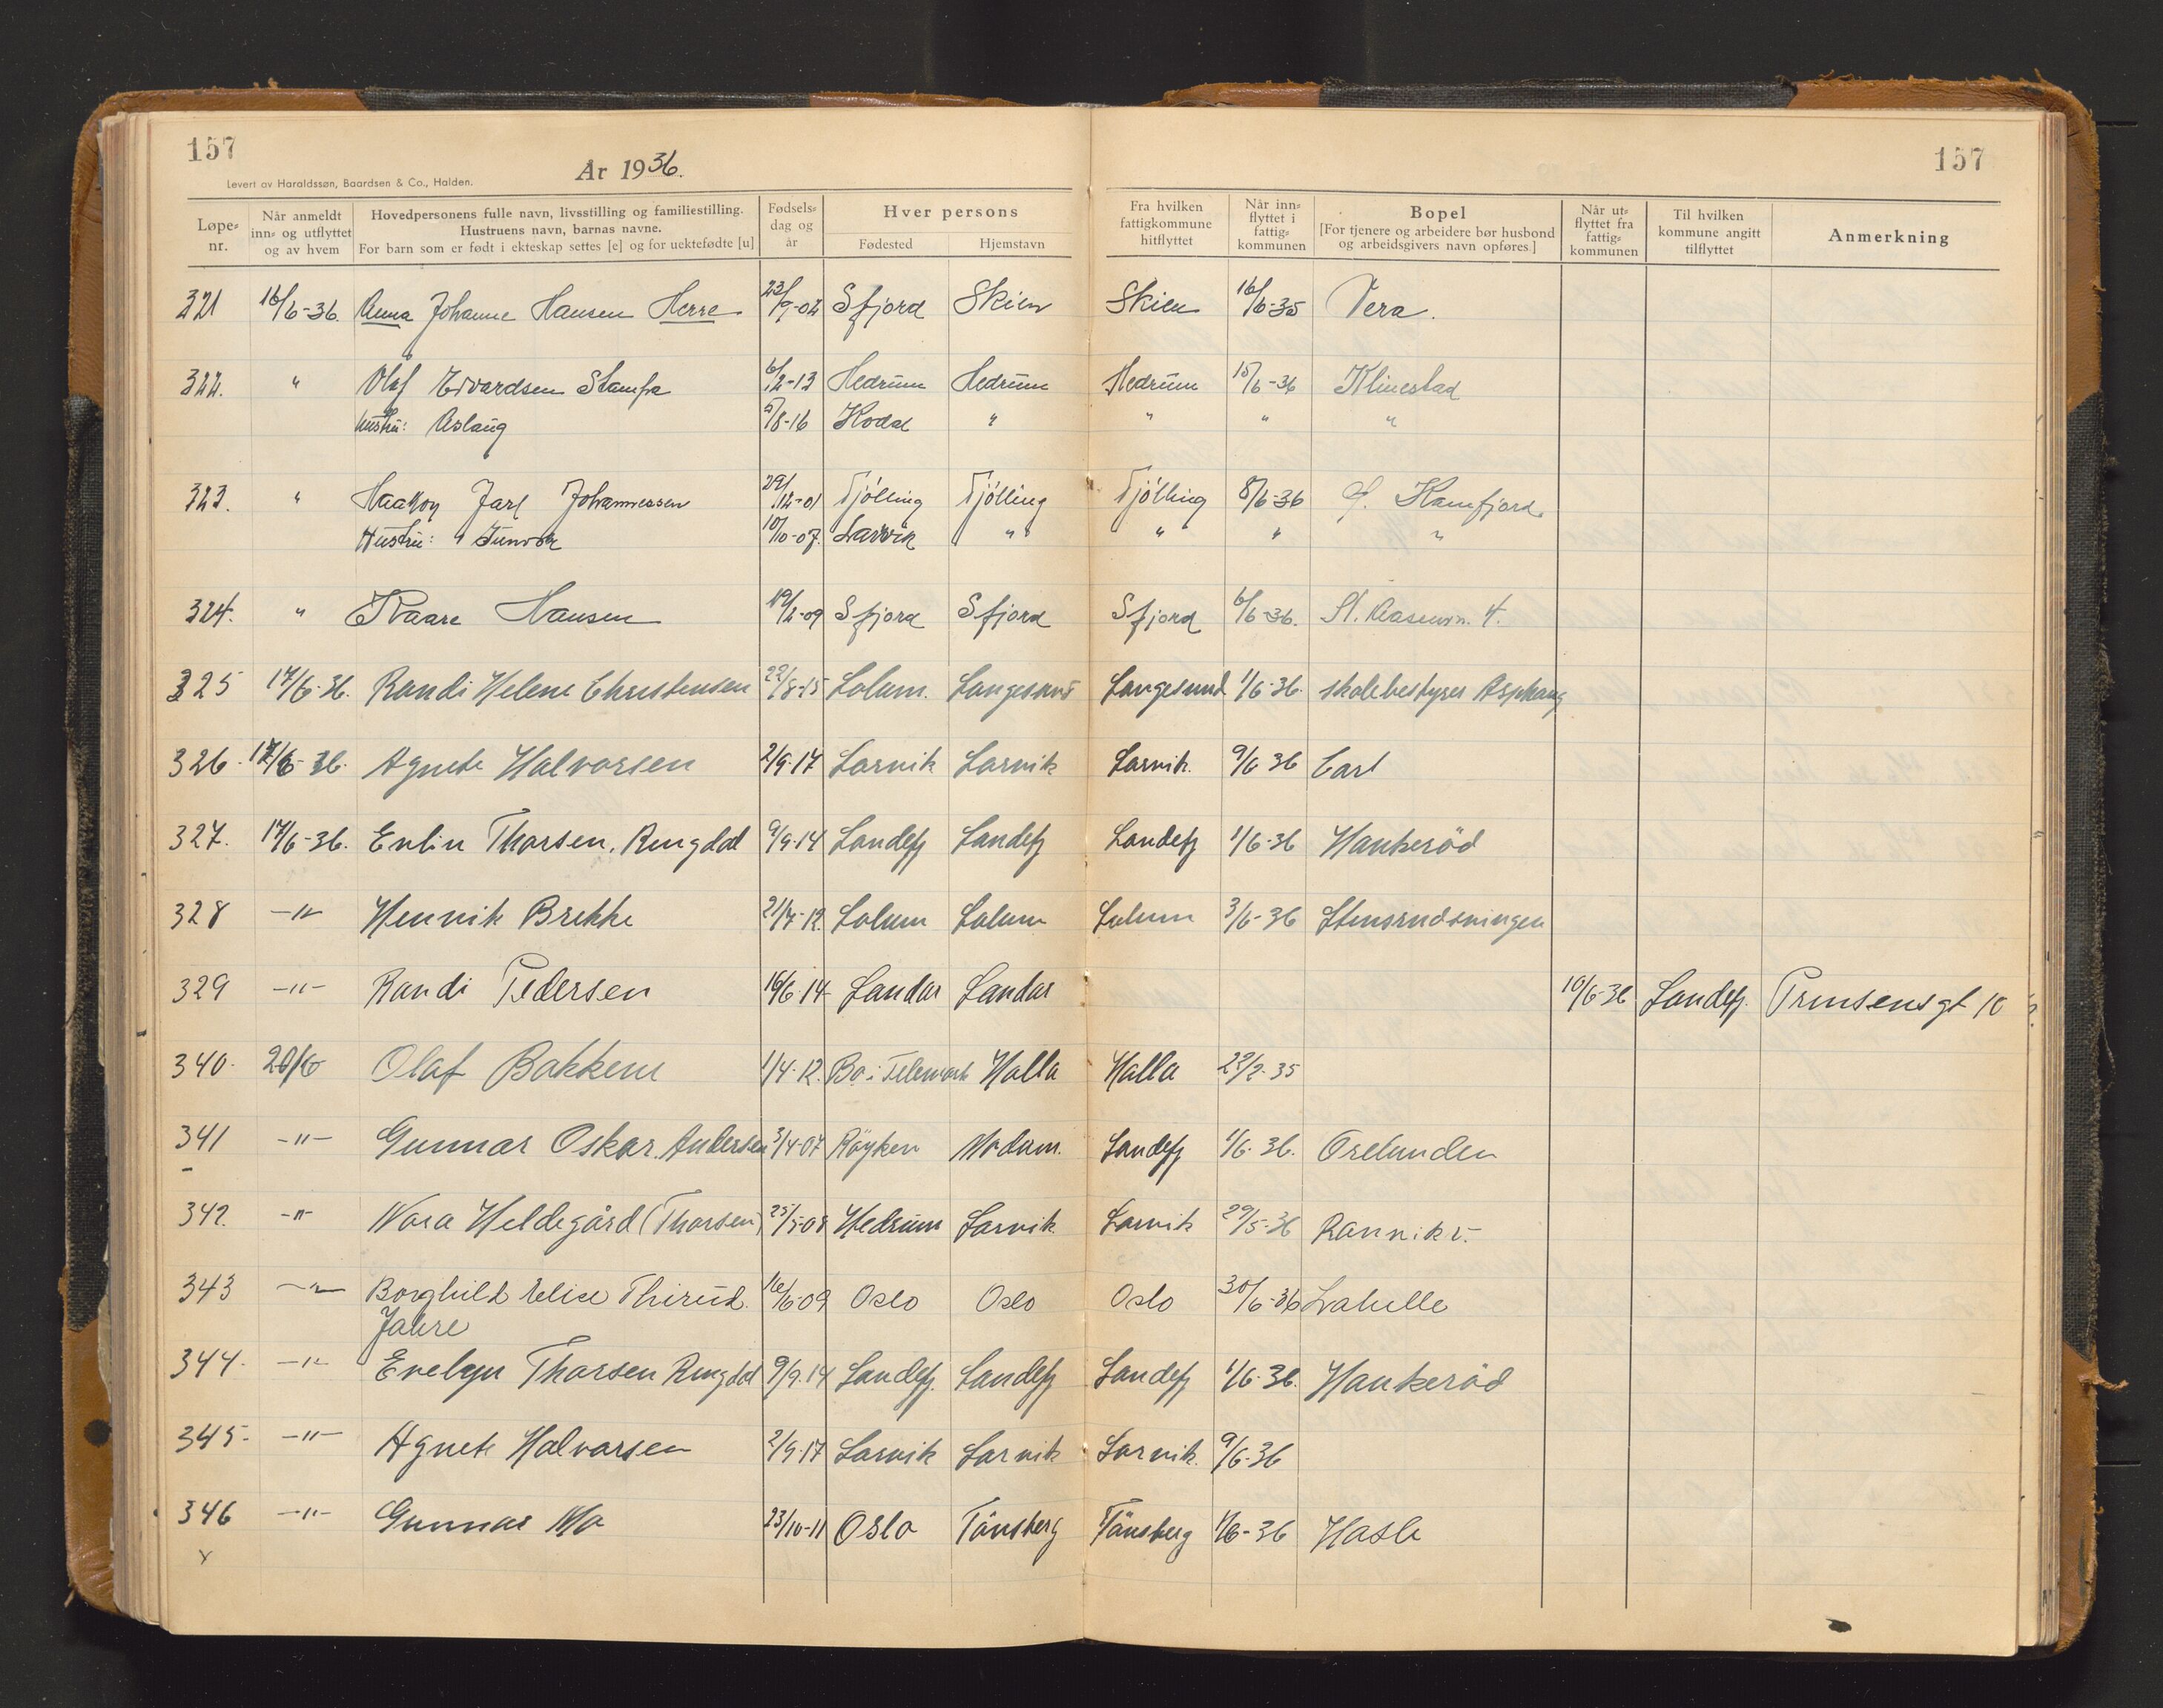 157
157
År 1936.
Levert av Haraldssøn, Baardsen & Co., Halden.
Løpe-nr. Når anmeldt inn- og utflyttet og av hvem Hovedpersonens fulle navn, livsstilling og familiestilling. Hustruens navn, barnas navne. For barn som er født i ekteskap settes [e] og for uektefødte [u] Fødsels-dag og år Hver persons Fødested Hjemstavn Fra hvilken fattigkommune hitflyttet Når inn-flyttet i fattig-kommunen Bopel [For tjenere og arbeidere bør husbond og arbeidsgivers navn opføres.] Når ut-flyttet fra fattig-kommunen Til hvilken kommune angitt tilflyttet Anmerkning
321 16/6-36. Anna Johanne Hansen Herre 23/9-02 Sfjord Skien Skien 16/6-35 Vera.
322. " Olaf Edvardsen Stampa 6/12-13 Hedrum Hedrum Hedrum 15/6-36 Klinestad
Hustru: Aslaug 5/8-16 Kodal " " " "
323. " Haakon Jarl Johannessen 29/12-01 Tjölling Tjölling Tjölling 8/6-36 Kamfjord.
Hustru: Gunvor 10/10-07. Larvik " " " "
324. " Kaare Hansen 19/2-09 Sfjord Sfjord Sfjord 6/6-36. St. Aasenvn. 4.
325 17/6-36. Randi Helene Christensen 22/8-15 Solum. Langesund Langesund 1/6-36. skolebestyrer Asphaug
326. 17/6-36. Agnete Halvorsen 2/9-17 Larvik Larvik Larvik. 9/6 36 Carl
327. 17/6-36. Evlin Thorsen, Ringdal 9/9-14 Sandefj Sandefj Sandefj 1/6-36 Haukeröd
328 -"- Henrik Brekke 21/7-12. Solum Solum Solum 3/6-36 Stensrudsvingen
329 -"- Randi Pedersen 16/6-14 Sandar Sandar 10/6-36 Sandefj. Prinsensgt 10
340. 20/6 Olaf Bakken 1/4-12. Bo i Telemark Halla Halla 22/2-35
341 -"- Gunnar Oskar Andersen 3/4-07 Röyken Modum. Sandefj 1/6-36. Orelunden
342. -"- Nora Heldegård (Thorsen) 25/5-08 Hedrum Larvik. Larvik 29/5-36 Ranvik v.
343 -"- Borghild Elise Thirud. 16/6-09 Oslo Oslo Oslo 30/6-36 Lahelle
Jahre
344. -"- Evelyn Thorsen Ringdal 9/9-14 Sandefj. Sandefj Sandefj 1/6-36. Haukeröd
345- -"- Agnete Halvorsen 2/9-17 Larvik Larvik Larvik. 9/6-36
346 -"- Gunnar Mo 23/10-11 Oslo Tönsberg Tönsberg 1/6-36 Hasle
x